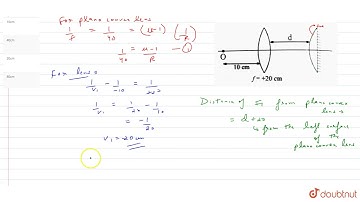 For plano convex lens
1/f = 1/40 = (μ-1) (1/R)
1/40 = μ-1/R - ①
For lens
1/v₁ - 1/-10 = 1/20
1/v₁ = 1/20 - 1/10
= -1/20
v₁ = -20 cm
d
O
10 cm
f = +20 cm
Distance of I₁ from plano convex
lens
= d+20
↳ from the left surface
of the
plano convex lens
doubtnut